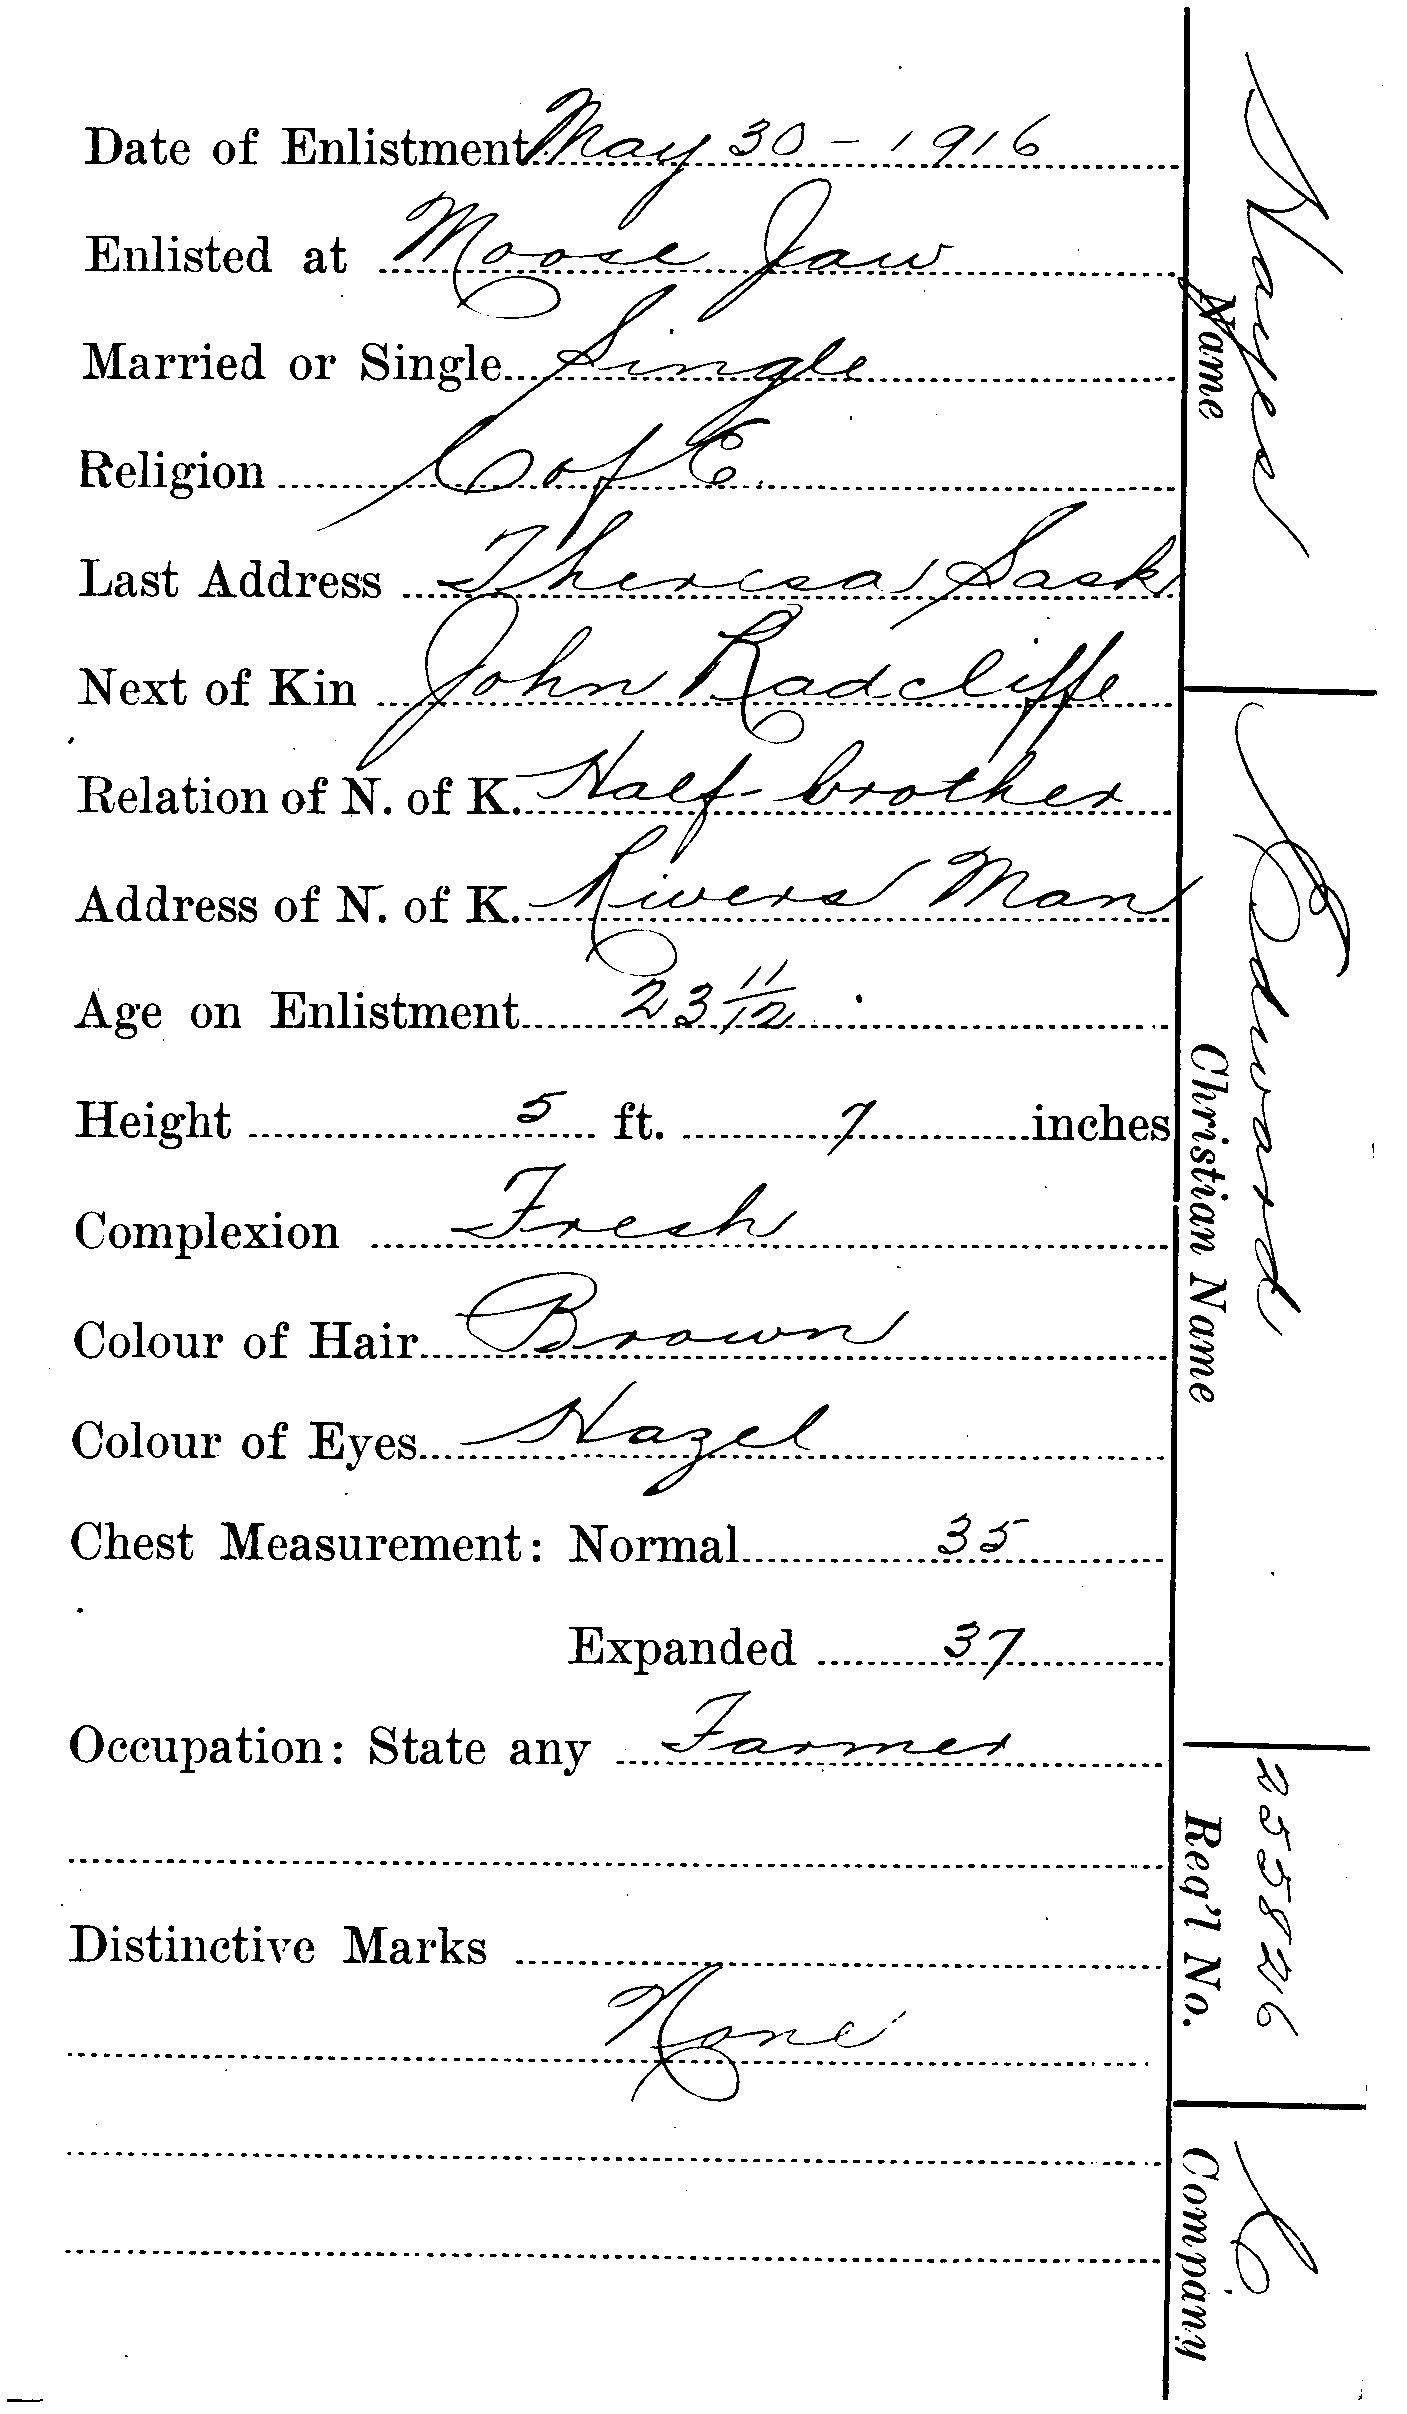 Date of Enlistment May 30 - 1916
Enlisted at Moose Jaw
Married or Single Single
Religion C of E.
Last Address Theresa Sask
Next of Kin John Radcliffe
Relation of N. of K. Half-brother
Address of N. of K. Rivers Man
Age on Enlistment 23 11/12
Height 5 ft. 7 inches
Complexion Fresh
Colour of Hair Brown
Colour of Eyes Hazel
Chest Measurement: Normal 35
Expanded 37
Occupation: State any Farmer
Distinctive Marks
None
Hayes
Name
Edward
Christian Name
255826
Reg'l No.
C
Company